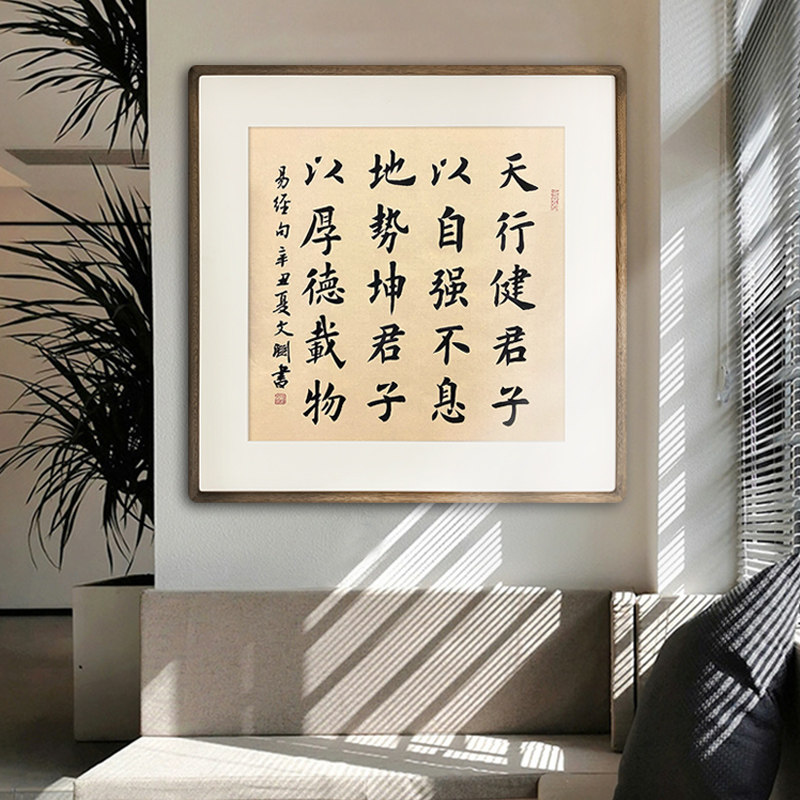 天行健君子
以自强不息
地势坤君子
以厚德載物
易经句辛丑夏文
書